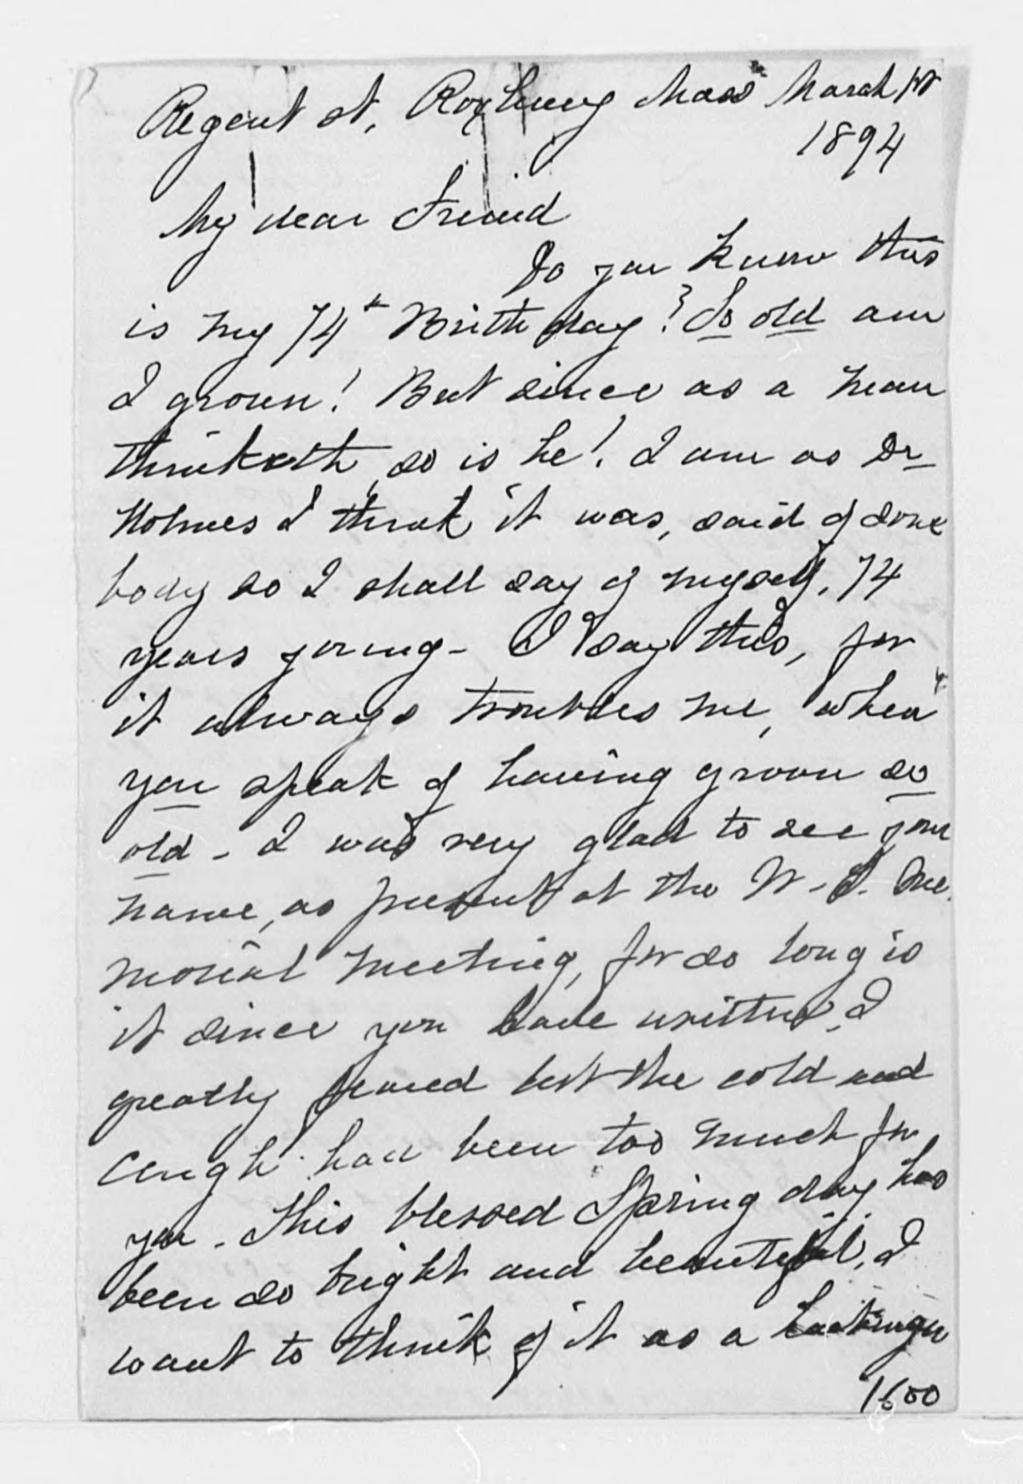 Regent st, Roxbury Mass March 1st
1894
My dear Friend
Do you know this
is my 74th Birth day? So old am
I grown! But since as a man
thinketh, so is he! I am as Dr
Holmes I think it was, said of some
body so I shall say of myself, 74
years young - I say this, for
it always troubles me, when
you speak of having grown so
old - I was very glad to see your
name, as present at the W. S. Me
morial meeting, for so long is
it since you have written, I
greatly feared lest the cold and
cough had been too much for
you - This blessed Spring day has
been so bright and beautiful, I
want to think of it as a
1600